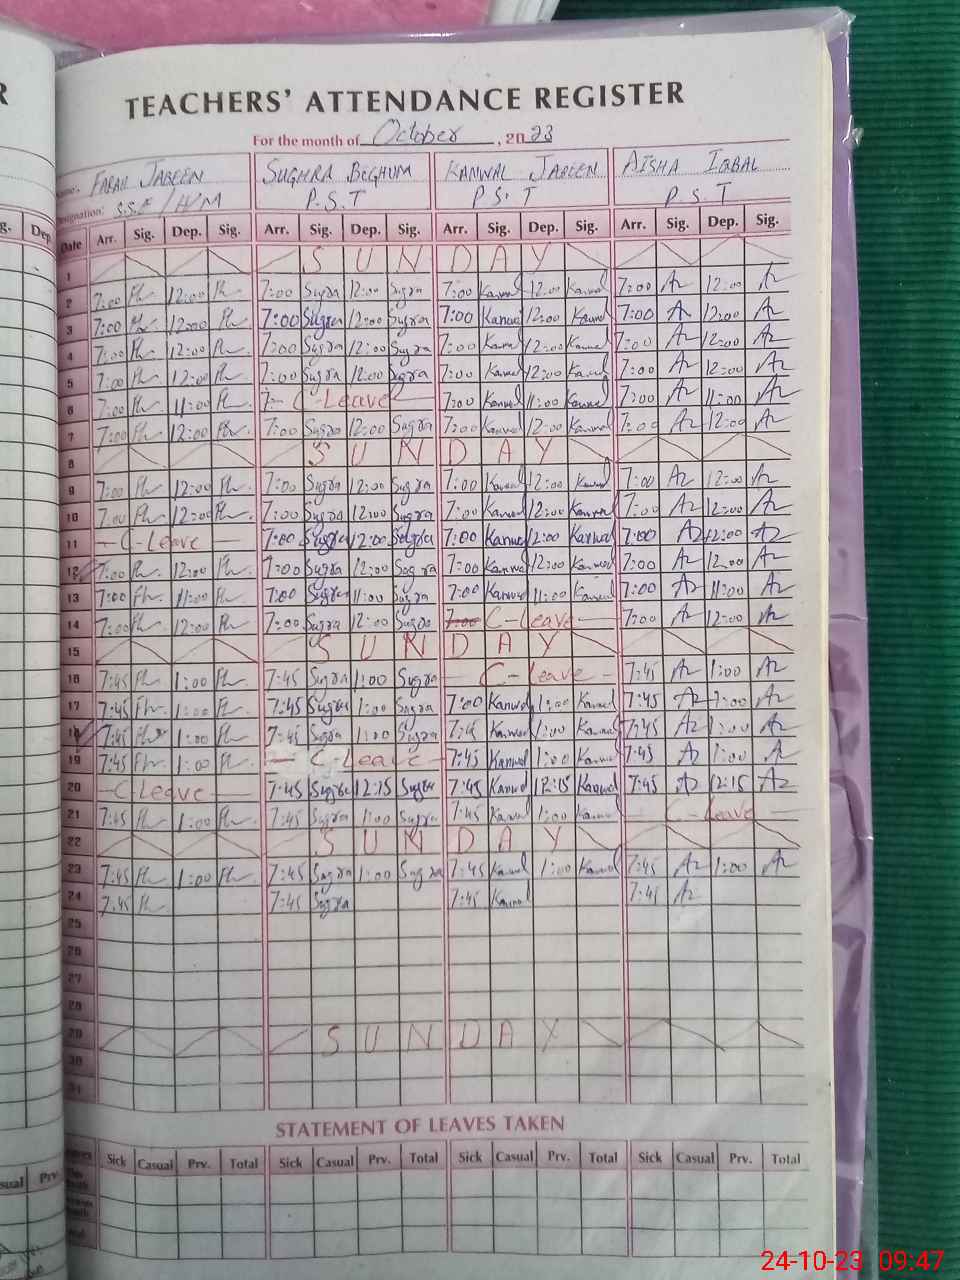 TEACHERS' ATTENDANCE REGISTER
For the month of October, 2023
Name: FARAH JABEEN SUGHRA BEGHUM KANWAL JABEEN AISHA IQBAL
Designation: S.S.E / H/M P.S.T P.S.T P.S.T
Date Arr. Sig. Dep. Sig. Arr. Sig. Dep. Sig. Arr. Sig. Dep. Sig. Arr. Sig. Dep. Sig.
1 SUNDAY
2 7:00 12:00 7:00 Sugra 12:00 Sugra 7:00 Kanwal 12:00 Kanwal 7:00 Az 12:00 Az
3 7:00 12:00 7:00 Sugra 12:00 Sugra 7:00 Kanwal 12:00 Kanwal 7:00 Az 12:00 Az
4 7:00 12:00 7:00 Sugra 12:00 Sugra 7:00 Kanwal 12:00 Kanwal 7:00 Az 12:00 Az
5 7:00 12:00 7:00 Sugra 12:00 Sugra 7:00 Kanwal 12:00 Kanwal 7:00 Az 12:00 Az
6 7:00 11:00 7- C-Leave 7:00 Kanwal 11:00 Kanwal 7:00 Az 11:00 Az
7 7:00 12:00 7:00 Sugra 12:00 Sugra 7:00 Kanwal 12:00 Kanwal 7:00 Az 12:00 Az
8 SUNDAY
9 7:00 12:00 7:00 Sugra 12:00 Sugra 7:00 Kanwal 12:00 Kanwal 7:00 Az 12:00 Az
10 7:00 12:00 7:00 Sugra 12:00 Sugra 7:00 Kanwal 12:00 Kanwal 7:00 Az 12:00 Az
11 - C-Leave - 7:00 Sugra 12:00 Sugra 7:00 Kanwal 12:00 Kanwal 7:00 Az 12:00 Az
12 7:00 12:00 7:00 Sugra 12:00 Sugra 7:00 Kanwal 12:00 Kanwal 7:00 Az 12:00 Az
13 7:00 11:00 7:00 Sugra 11:00 Sugra 7:00 Kanwal 11:00 Kanwal 7:00 Az 11:00 Az
14 7:00 12:00 7:00 Sugra 12:00 Sugra 7:00 C-Leave - 7:00 Az 12:00 Az
15 SUNDAY
16 7:45 1:00 7:45 Sugra 1:00 Sugra - C-Leave - 7:45 Az 1:00 Az
17 7:45 1:00 7:45 Sugra 1:00 Sugra 7:00 Kanwal 1:00 Kanwal 7:45 Az 1:00 Az
18 7:45 1:00 7:45 Sugra 1:00 Sugra 7:45 Kanwal 1:00 Kanwal 7:45 Az 1:00 Az
19 7:45 1:00 - C-Leave - 7:45 Kanwal 1:00 Kanwal 7:45 Az 1:00 Az
20 - C-Leave - 7:45 Sugra 12:15 Sugra 7:45 Kanwal 12:15 Kanwal 7:45 Az 12:15 Az
21 7:45 1:00 7:45 Sugra 1:00 Sugra 7:45 Kanwal 1:00 Kanwal - C-Leave -
22 SUNDAY
23 7:45 1:00 7:45 Sugra 1:00 Sugra 7:45 Kanwal 1:00 Kanwal 7:45 Az 1:00 Az
24 7:45 7:45 Sugra 7:45 Kanwal 7:45 Az
25
26
27
28
29 SUNDAY
30
31
STATEMENT OF LEAVES TAKEN
Sick Casual Prv. Total Sick Casual Prv. Total Sick Casual Prv. Total Sick Casual Prv. Total
24-10-23 09:47